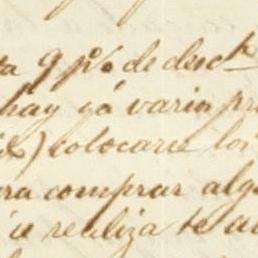 ta 9 p% de desct
hay yá varios pr
) colocarse los
ra comprar alg
realiza te a